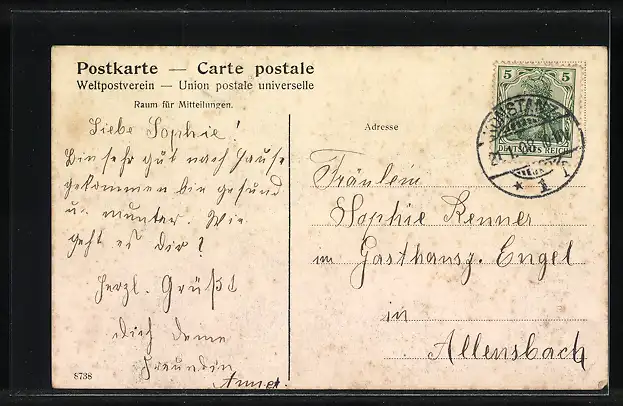 Postkarte — Carte postale
Weltpostverein — Union postale universelle
Raum für Mitteilungen.
Adresse
Liebe Sophie!
Bin sehr gut nach Hause
gekommen bin gesund
u. munter. Wie
geht es dir?
Herzl. Grüßt
dich deine
Freundin
8738
5 5
DEUTSCHES REICH
KONSTANZ
Fräulein
Sophie Renner
im Gasthausz. Engel
in
Allensbach